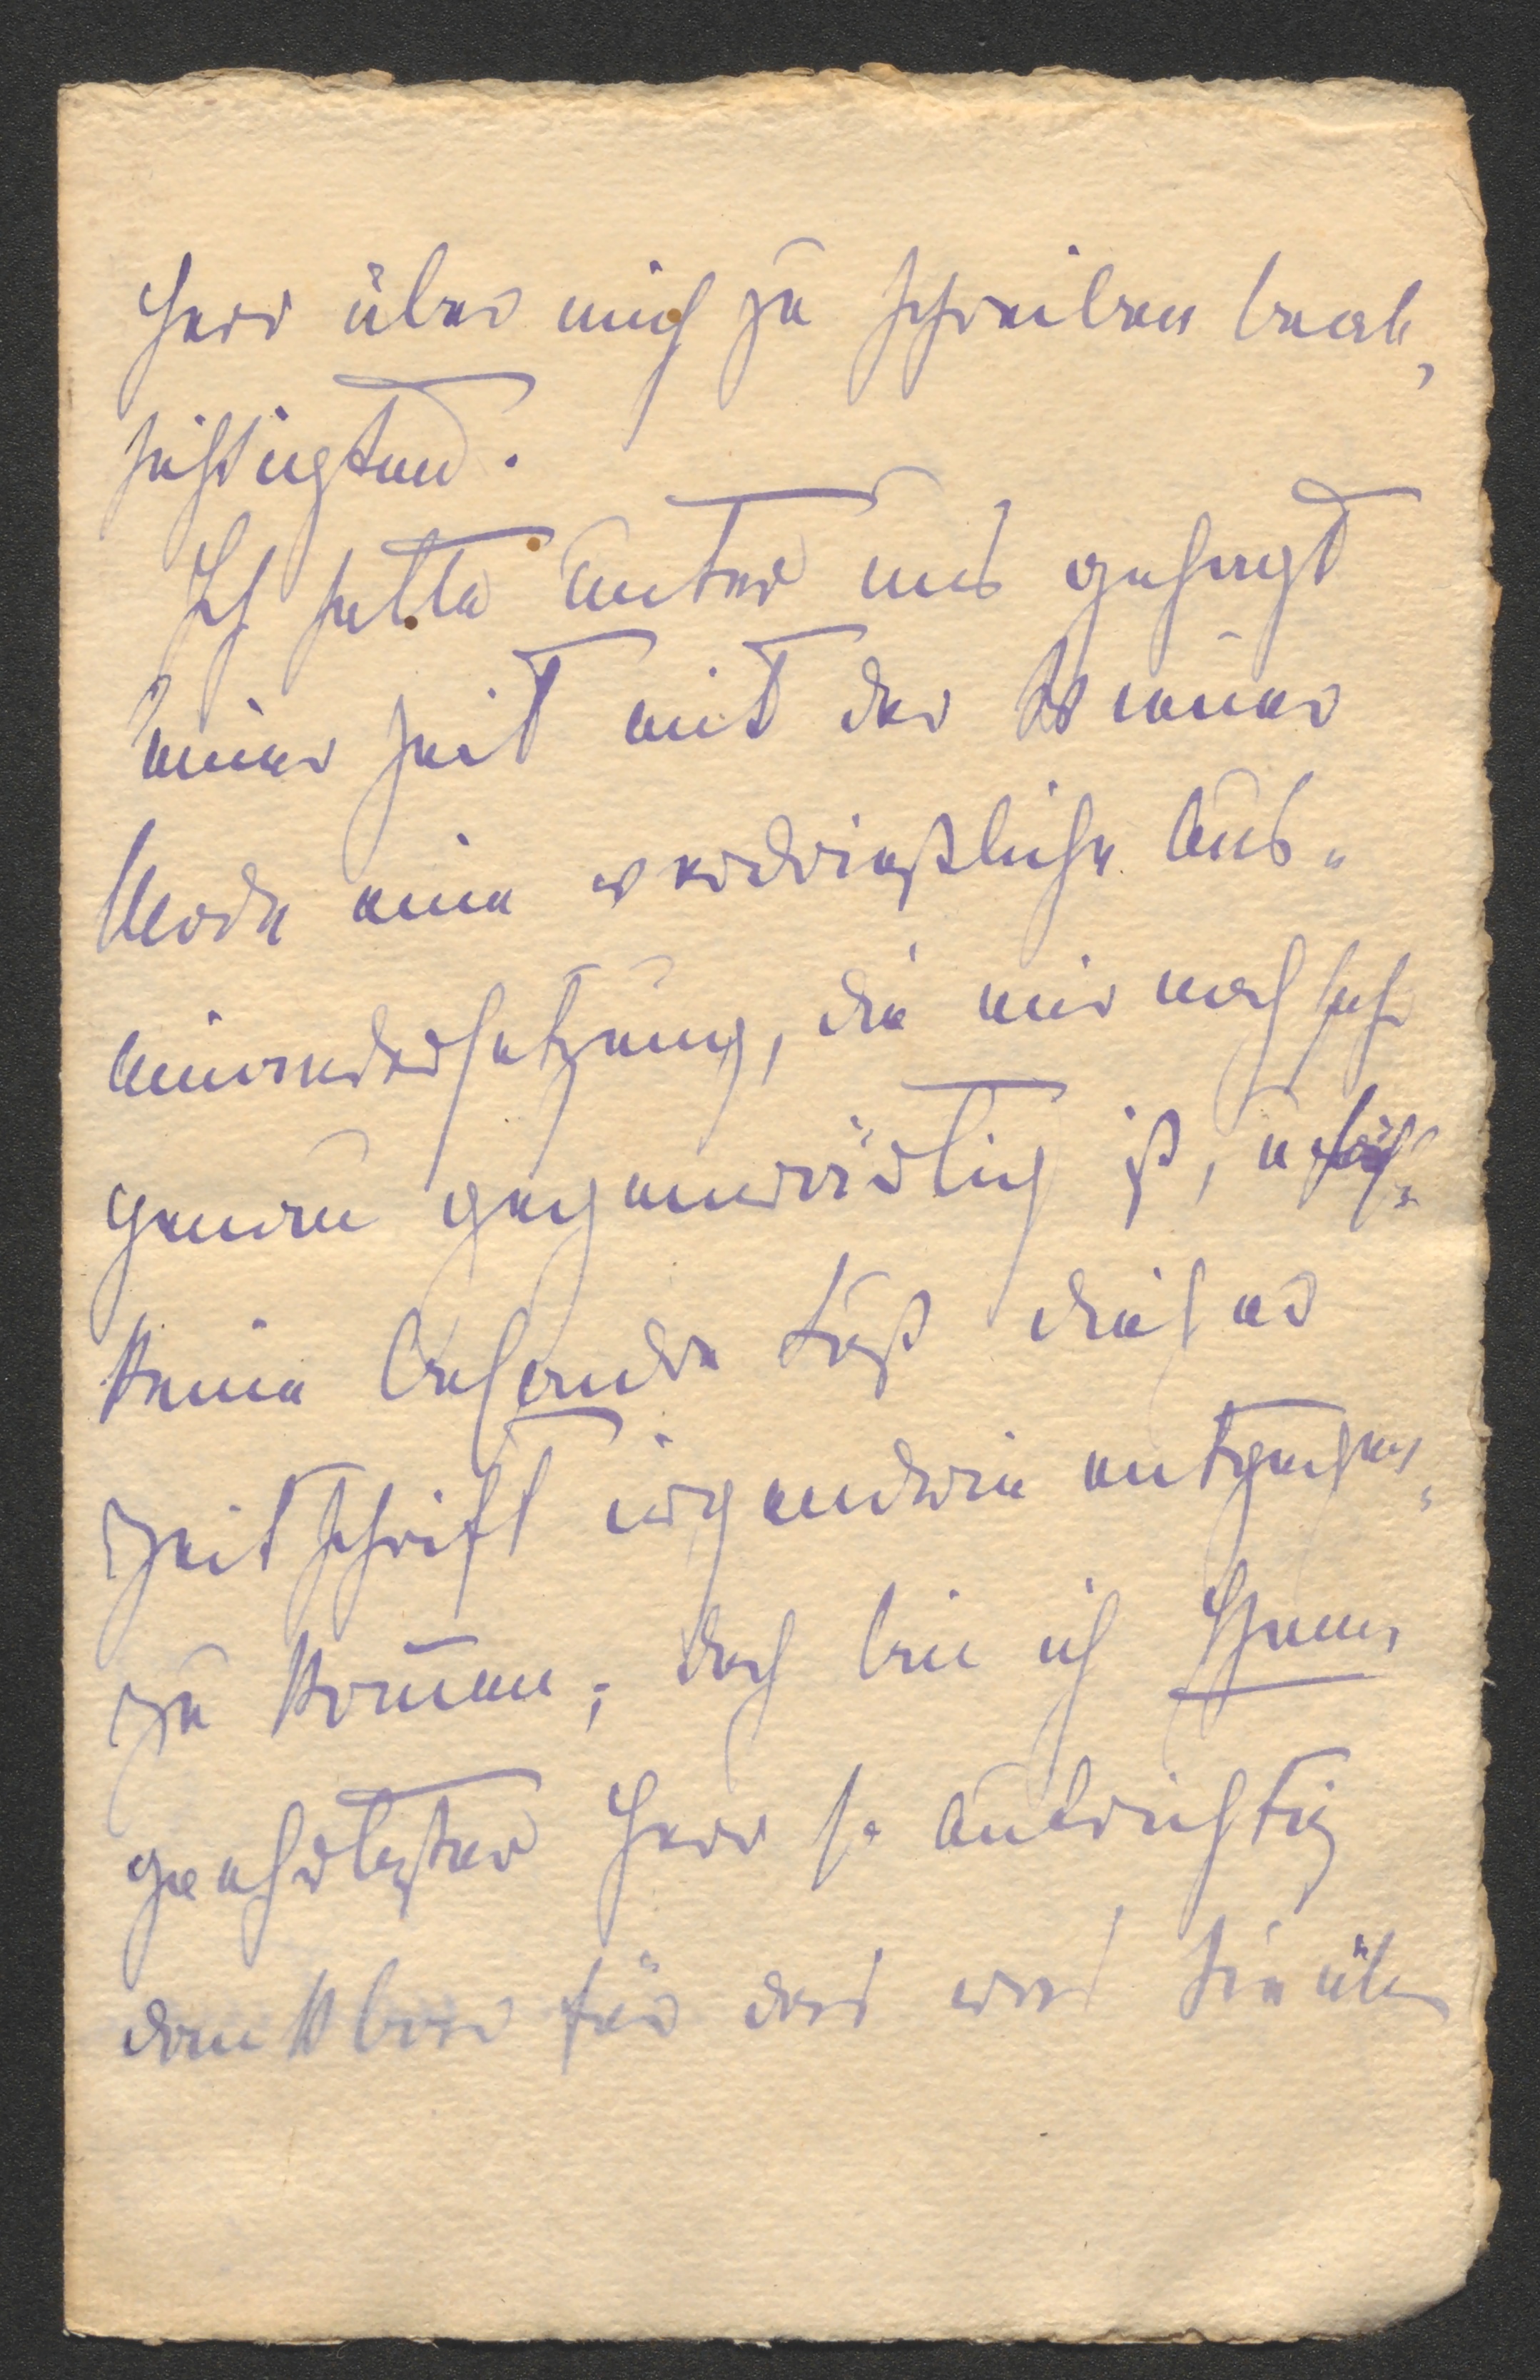 Herr über mich zu schreiben beab-
sichtigten.
Ich hatte unter uns gesagt
einer Zeit mit der Wiener
Mode eine verdrießliche Aus-
einandersetzung, die mir noch sehr
genau gegenwärtig ist, u.
keine besondere Lust dieser
Zeitschrift irgendwie entgegen-
zu kom̅en; doch bin ich Ihnen,
geehrtester Herr so aufrichtig
dankbar für das was Sie über